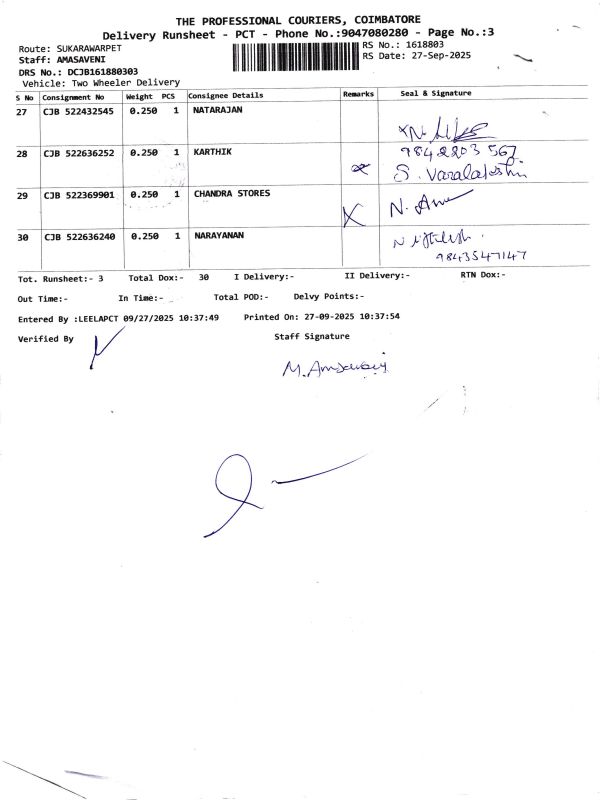 THE PROFESSIONAL COURIERS, COIMBATORE
Delivery Runsheet - PCT - Phone No.:9047080280 - Page No.:3
Route: SUKARAWARPET RS No.: 1618803
Staff: AMASAVENI RS Date: 27-Sep-2025
DRS No.: DCJB161880303
Vehicle: Two Wheeler Delivery
S No Consignment No Weight PCS Consignee Details Remarks Seal & Signature
27 CJB 522432545 0.250 1 NATARAJAN
28 CJB 522636252 0.250 1 KARTHIK 9842203 567
S. Varalakshmi
29 CJB 522369901 0.250 1 CHANDRA STORES
30 CJB 522636240 0.250 1 NARAYANAN
9843547147
Tot. Runsheet:- 3 Total Dox:- 30 I Delivery:- II Delivery:- RTN Dox:-
Out Time:- In Time:- Total POD:- Delvy Points:-
Entered By :LEELAPCT 09/27/2025 10:37:49 Printed On: 27-09-2025 10:37:54
Verified By Staff Signature